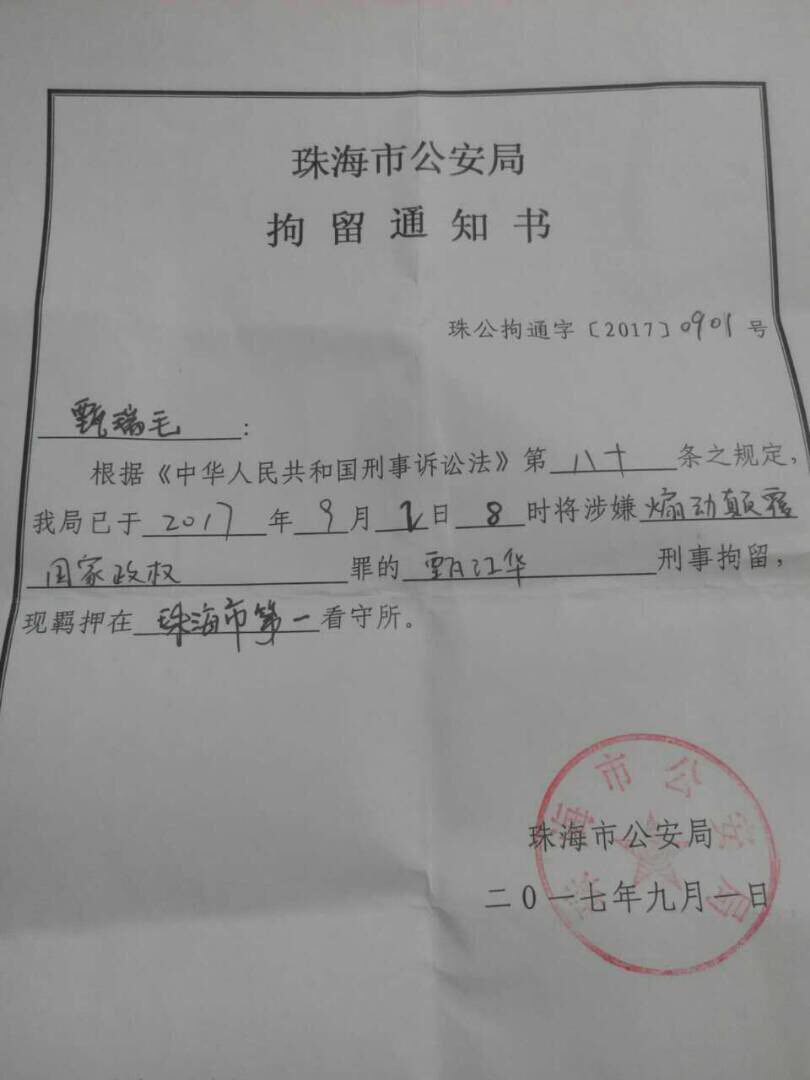 珠海市公安局
拘留通知书
珠公拘通字〔2017〕0901号
甄瑞毛:
根据《中华人民共和国刑事诉讼法》第八十条之规定,
我局已于2017年9月2日8时将涉嫌煽动颠覆
国家政权罪的甄江华刑事拘留,
现羁押在珠海市第一看守所。
珠海市公安局
珠海市公安局
二0一七年九月一日